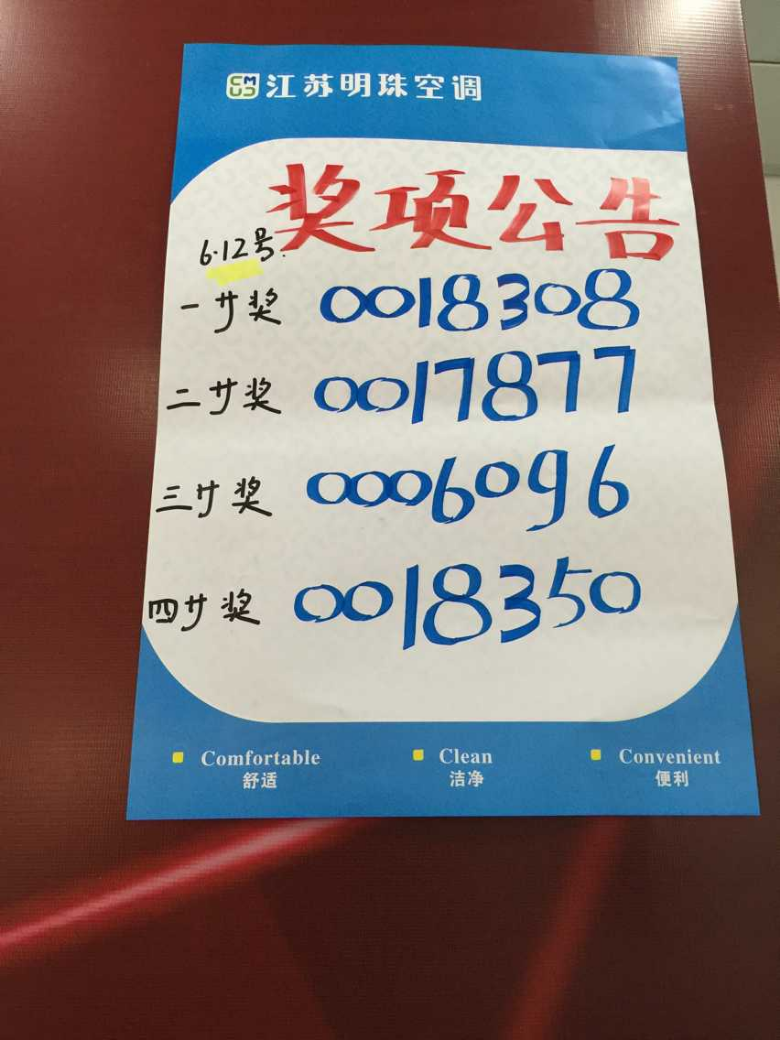 江苏明珠空调
奖项公告
6.12号.
一サ奖 0018308
二サ奖 0017877
三サ奖 0006096
四サ奖 0018350
Comfortable Clean Convenient
舒适 洁净 便利